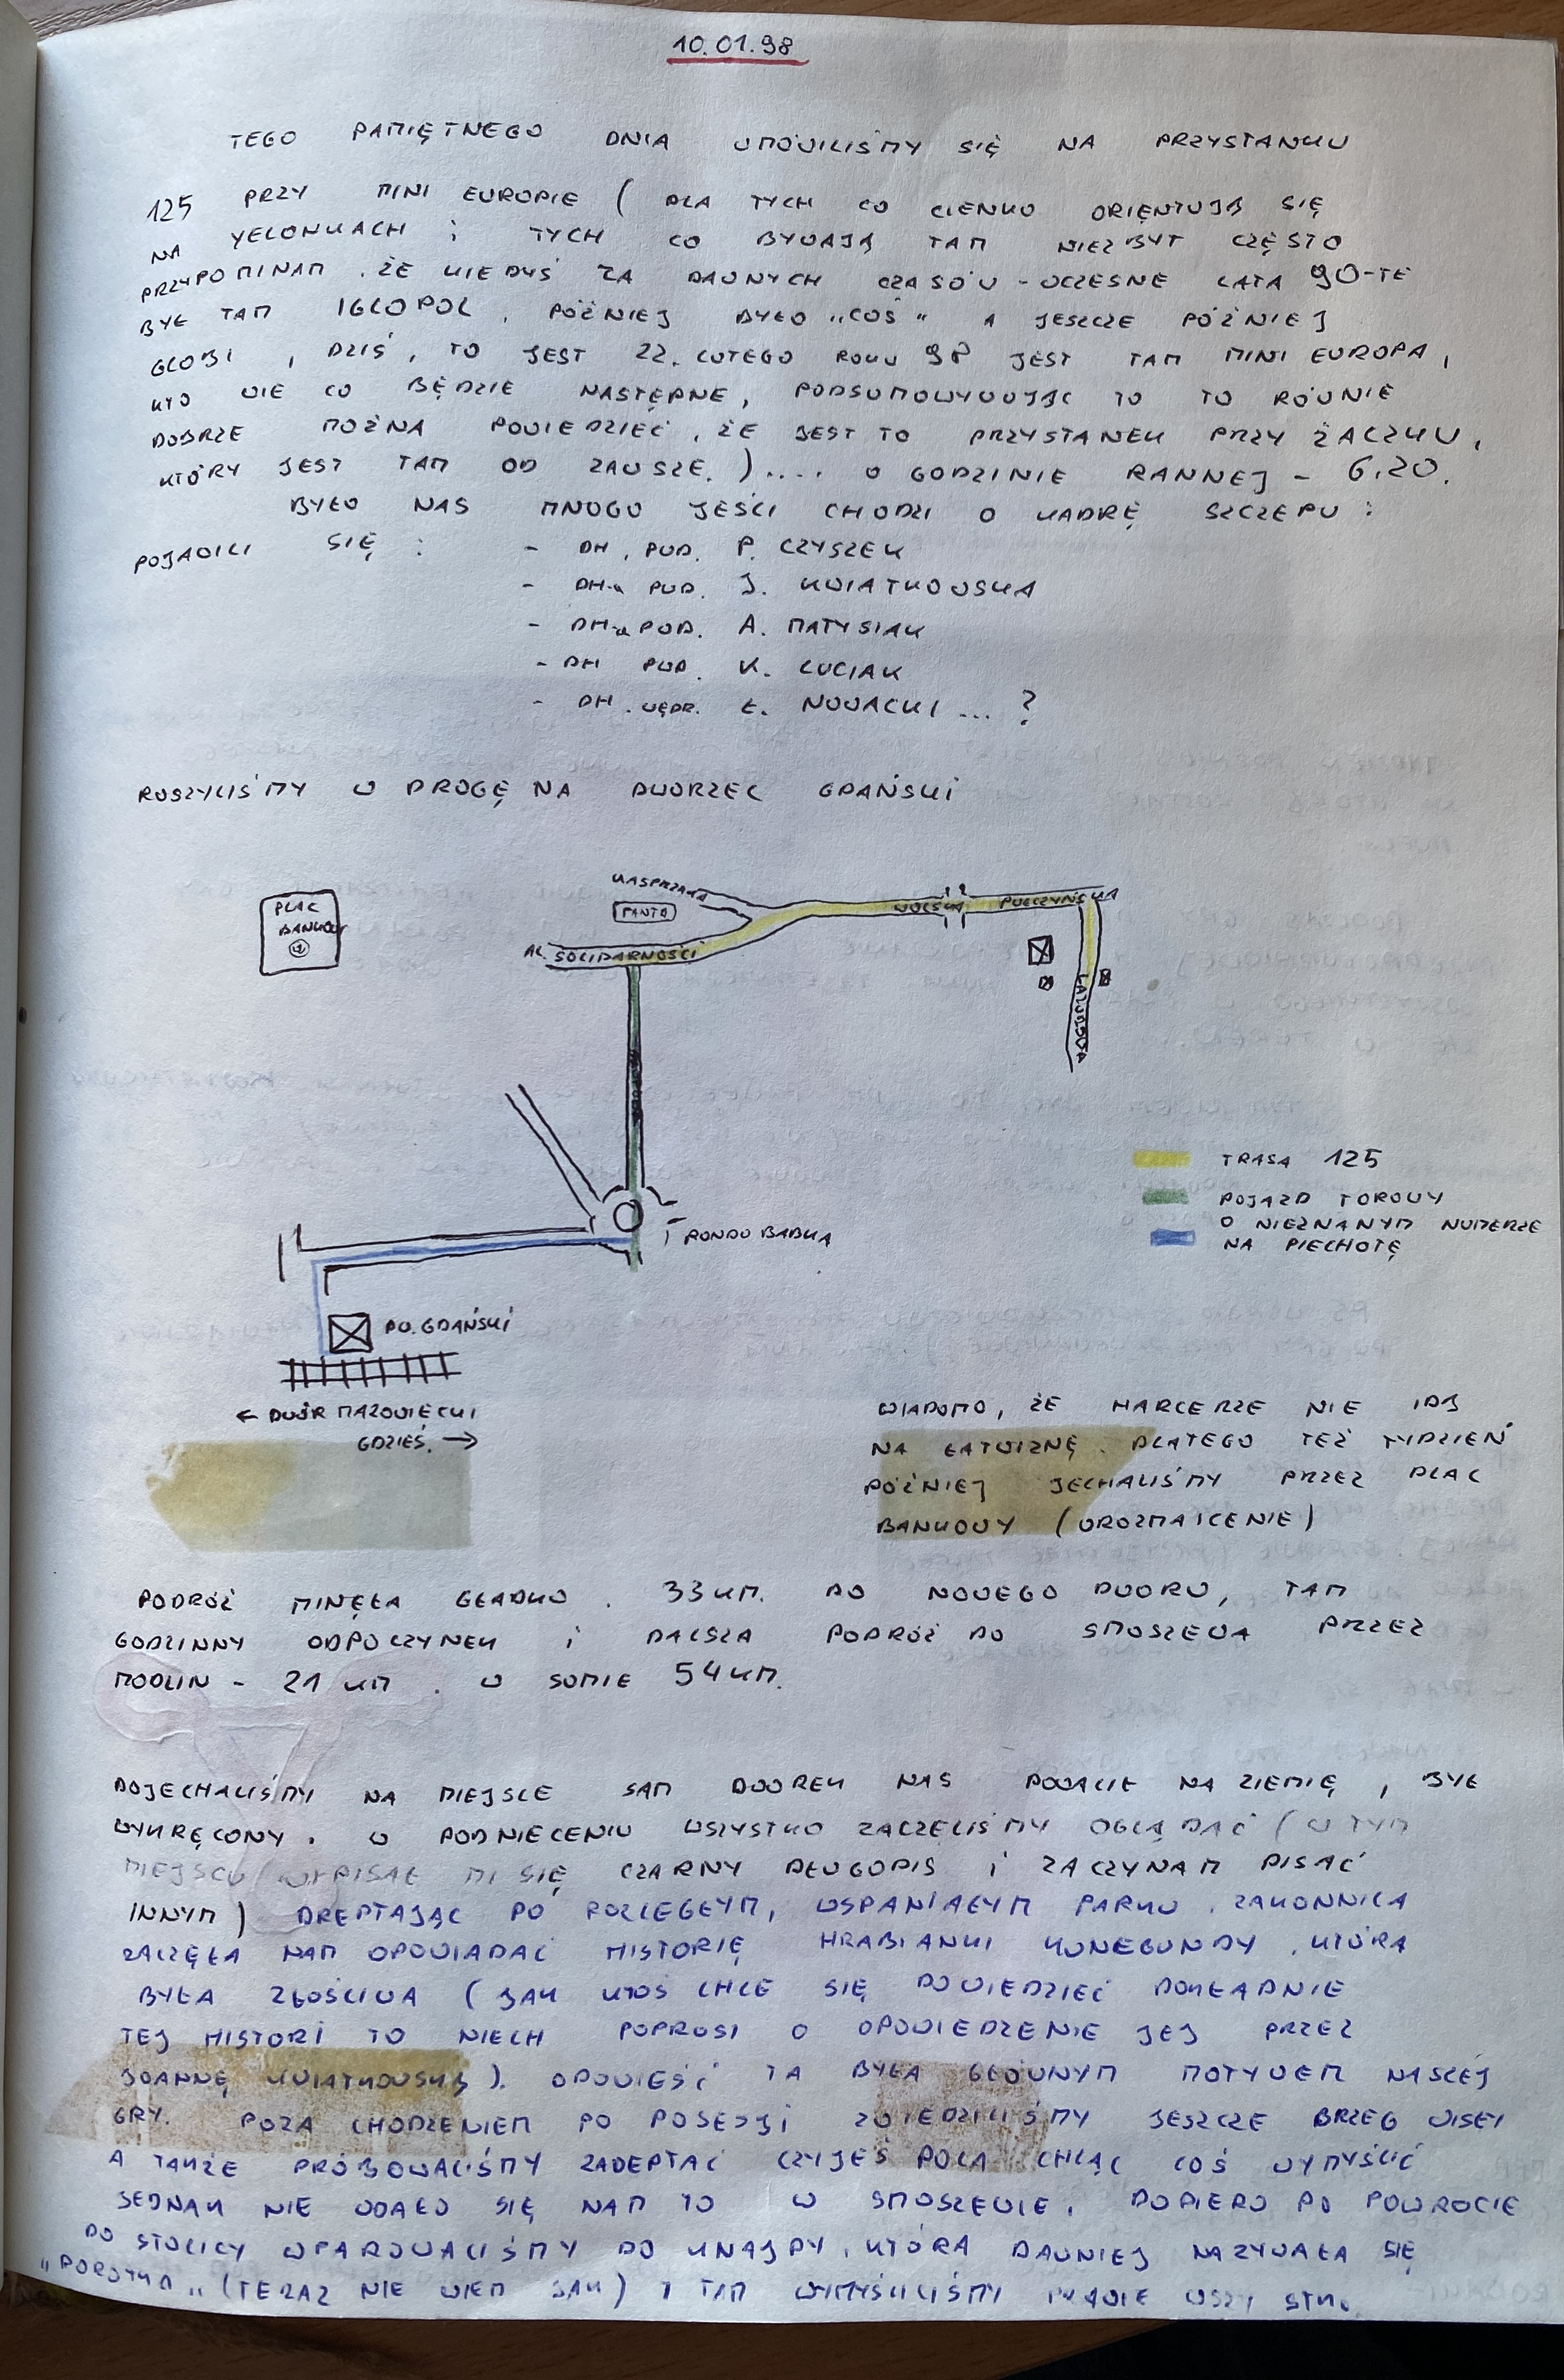 10.01.98
TEGO PAMIĘTNEGO DNIA UMÓWILIŚMY SIĘ NA PRZYSTANKU
125 PRZY MINI EUROPIE ( DLA TYCH CO CIENKO ORIĘNTUJĄ SIĘ
NA JELONKACH I TYCH CO BYWAJĄ TAM NIEZBYT CZĘSTO
PRZYPOMINAM, ŻE KIEDYŚ ZA DAWNYCH CZASÓW - WCZESNE LATA 90-TE
BYŁ TAM IGLOPOL, PÓŹNIEJ BYŁO "COŚ" A JESZCZE PÓŹNIEJ
GLOBI, DZIŚ, TO JEST 22. LUTEGO ROKU 98 JEST TAM MINI EUROPA,
KTO WIE CO BĘDZIE NASTĘPNE, PODSUMOWYWUJĄC TO TO RÓWNIE
DOBRZE MOŻNA POWIEDZIEĆ, ŻE JEST TO PRZYSTANEK PRZY ŻACZKU,
KTÓRY JEST TAM OD ZAWSZE. ).... O GODZINIE RANNEJ - 6.20.
BYŁO NAS MNOGO JEŚLI CHODZI O KADRĘ SZCZEPU :
POJAWILI SIĘ :
- DH. PWD. P. CZYSZEK
- DH-a PWD. J. KWIATKOWSKA
- DH-a POD. A. MATYSIAK
- DH PWD. K. LUCIAK
- DH. WĘDR. Ł. NOWACKI ... ?
RUSZYLIŚMY W DROGĘ NA DWORZEC GDAŃSKI
PLAC
BANKOWY
KASPRZAKA
FANTA
WOLSKA
POŁCZYŃSKA
AL. SOLIDARNOŚCI
LAZUROWA
TRASA 125
POJAZD TOROWY
O NIEZNANYM NUMERZE
NA PIECHOTĘ
RONDO BABKA
DW. GDAŃSKI
← DWÓR MAZOWIĘCKI
GDZIEŚ. →
WIADOMO, ŻE HARCERZE NIE IDĄ
NA ŁATWIZNĘ. DLATEGO TEŻ TYDZIEŃ
PÓŹNIEJ JECHALIŚMY PRZEZ PLAC
BANKOWY (UROZMAICENIE)
PODRÓŻ MINĘŁA GŁADKO. 33 KM. DO NOWEGO DWORU, TAM
GODZINNY ODPOCZYNEK I DALSZA PODRÓŻ DO SMOSZEWA PRZEZ
MODLIN - 21 KM. W SUMIE 54 KM.
DOJECHALIŚMY NA MIEJSCE SAM DWOREK NAS POWALIŁ NA ZIEMIĘ, BYŁ
WYKRĘCONY. W PODNIECENIU WSZYSTKO ZACZĘLIŚMY OGLĄDAĆ (W TYM
MIEJSCU WYPISAŁ MI SIĘ CZARNY DŁUGOPIS I ZACZYNAM PISAĆ
INNYM) DREPTAJĄC PO ROZLEGŁYM, WSPANIAŁYM PARKU. ZAKONNICA
ZACZĘŁA NAM OPOWIADAĆ HISTORIĘ HRABIANKI KUNEGUNDY, KTÓRA
BYŁA ZŁOŚLIWA (JAK KTOŚ CHCE SIĘ DOWIEDZIEĆ DOKŁADNIE
TEJ HISTORI TO NIECH POPROSI O OPOWIEDZENIE JEJ PRZEZ
JOANNĘ KWIATKOWSKĄ). OPOWIEŚĆ TA BYŁA GŁÓWNYM MOTYWEM NASZEJ
GRY. POZA CHODZENIEM PO POSESJI ZWIEDZILIŚMY JESZCZE BRZEG WISŁY
A TAKŻE PRÓBOWALIŚMY ZADEPTAĆ CZYJEŚ POLA CHCĄC COŚ WYMYŚLIĆ
JEDNAK NIE UDAŁO SIĘ NAM TO W SMOSZEWIE. DOPIERO PO POWROCIE
DO STOLICY WPAROWALIŚMY DO KNAJPY, KTÓRA DAWNIEJ NAZYWAŁA SIĘ
(TERAZ NIE WIEM JAK) I TAM WYMYŚLILIŚMY PRAWIE WSZYSTKO.